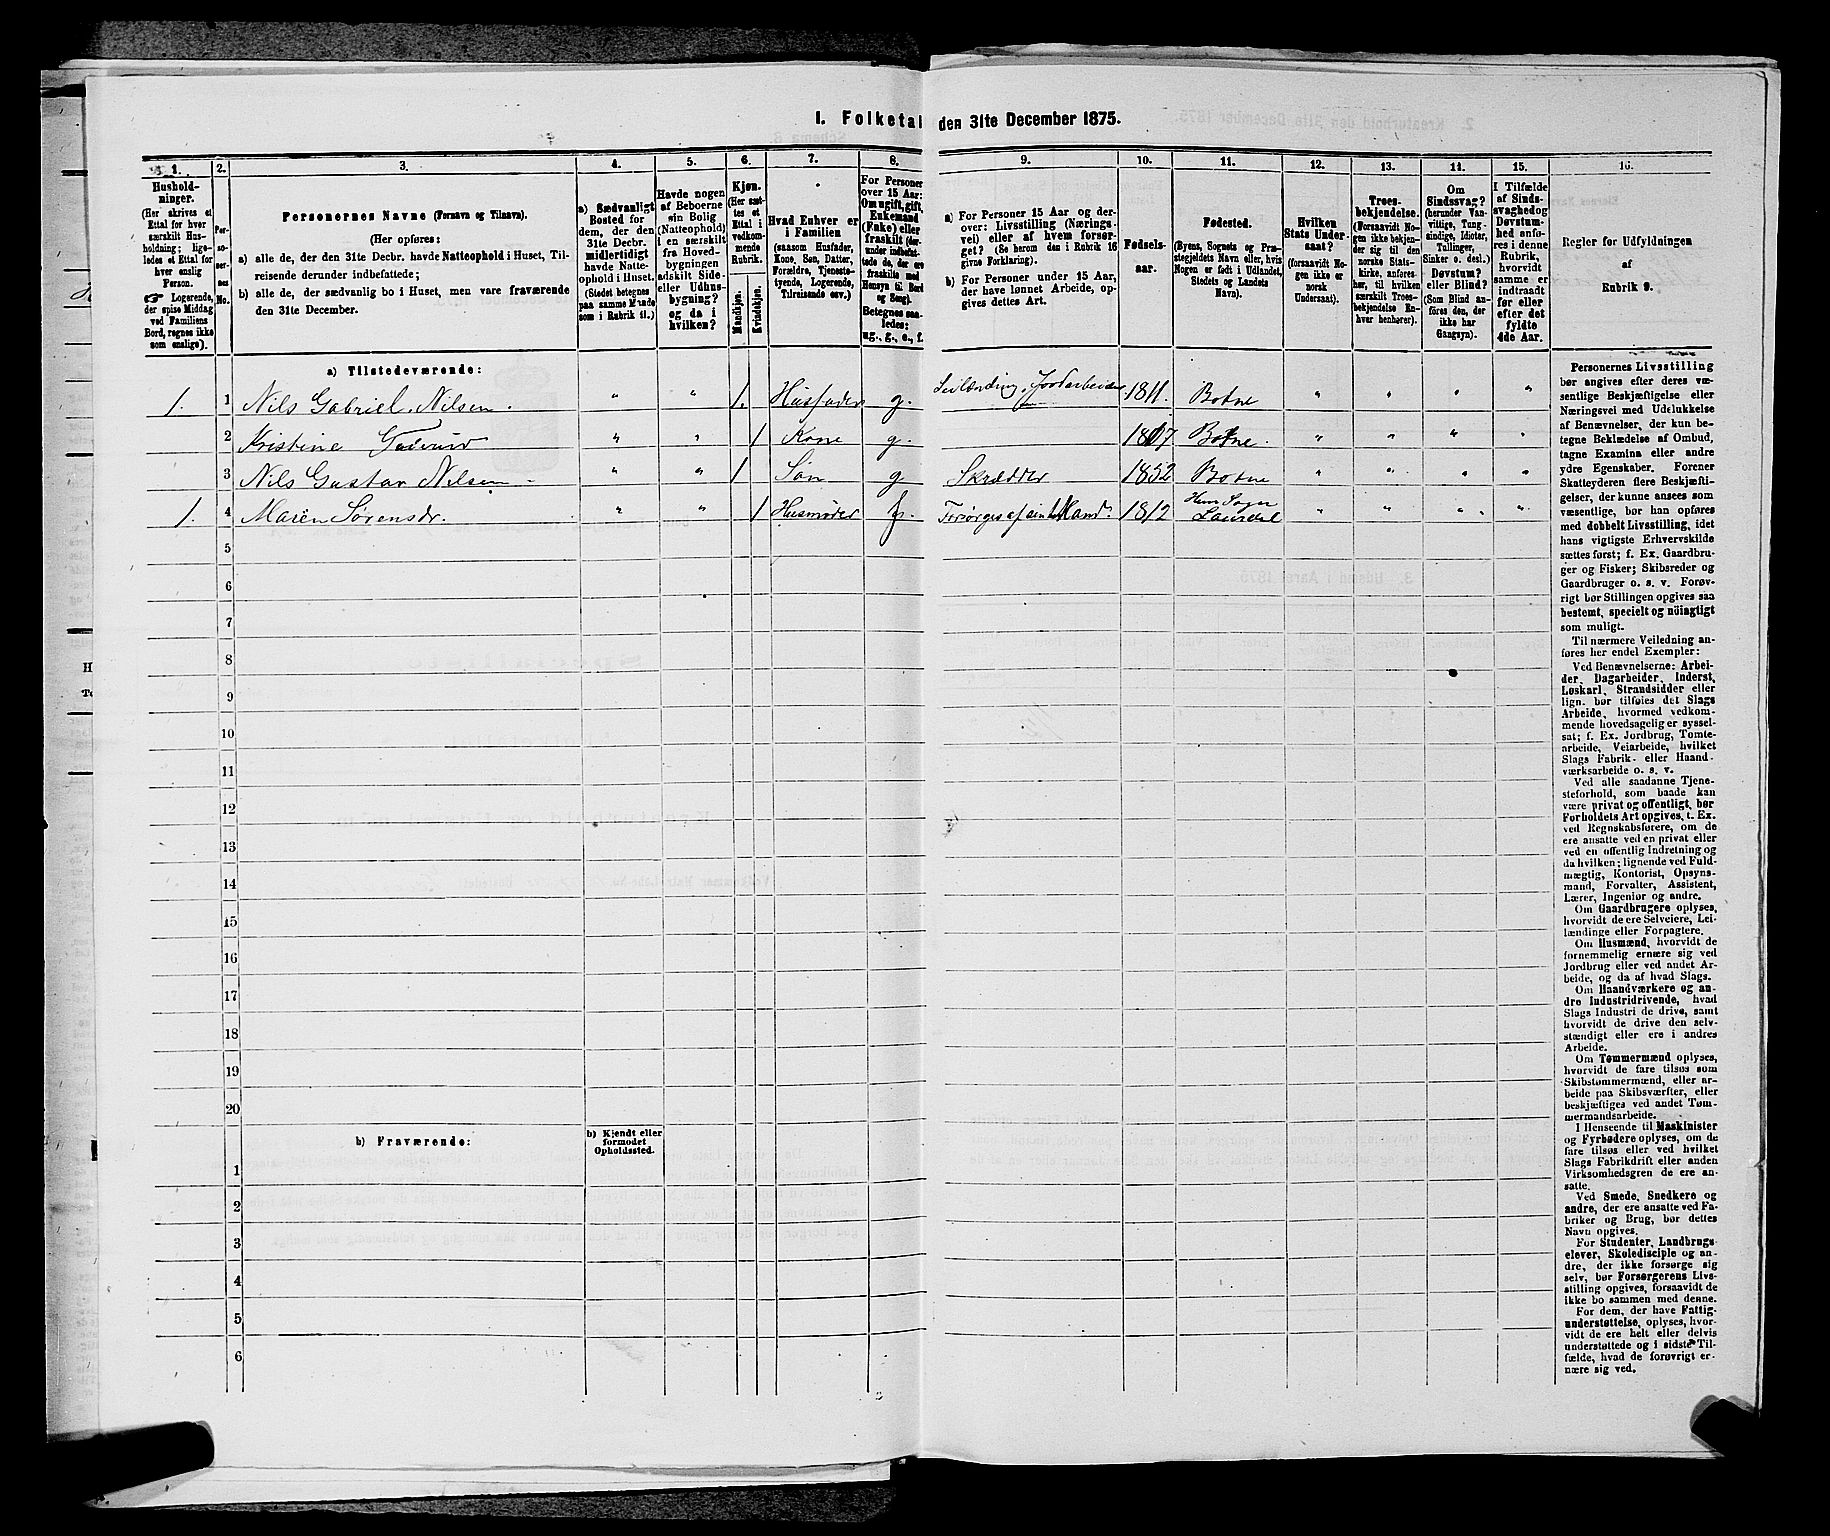 I. Folketal den 31te December 1875.
1. 2. 3. 4. 5. 6. 7. 8. 9. 10. 11. 12. 13. 14. 15. 16.
Hushold-
ninger.
(Her skrives et
Ettal for hver
særskilt Hus-
holdning; lige-
ledes et Ettal for
hver enslig
Person.
Logerende,
der spise Middag
ved Familiens
Bord, regnes ikke
som enslige).
Per-
so-
ner-
nes
No.
Personernes Navne (Fornavn og Tilnavn).
(Her opføres:
a) alle de, der den 31te Decbr. havde Natteophold i Huset, Til-
reisende derunder indbefattede;
b) alle de, der sædvanlig bo i Huset, men vare fraværende
den 31te December.
a) Sædvanligt
Bosted for
dem, der den
31te Decbr.
midlertidigt
havde Natte-
ophold i Huset.
(Stedet betegnes
paa samme Maade
som i Rubrik 11.)
Havde nogen
af Beboerne
sin Bolig
(Natteophold)
i en særskilt
fra Hoved-
bygningen
adskilt Side-
eller Udhus-
bygning?
og da i
hvilken?
Kjøn.
(Her sæt-
tes et
Ettal i
vedkom-
mende
Rubrik.
Mandkjøn.
Kvindekjøn.
Hvad Enhver er
i Familien
(saasom Husfader,
Kone, Søn, Datter,
Forældre, Tjeneste-
tyende, Logerende,
Tilreisende osv.)
For Personer
over 15 Aar:
Om ugift, gift,
Enkemand
(Enke) eller
fraskilt (der-
under indbefat-
tede de, der ere
fraskilte med
Hensyn til Bord
og Seng).
Betegnes saa-
ledes:
ug., g., e., f.
a) For Personer 15 Aar og der-
over: Livsstilling (Nærings-
vei) eller af hvem forsør-
get? (Se herom den i Rubrik 16
givne Forklaring).
b) For Personer under 15 Aar,
der have lønnet Arbeide, op-
gives dettes Art.
Fødsels-
aar.
Fødested.
(Byens, Sognets og Præ-
stegjeldets Navn eller, hvis
Nogen er født i Udlandet,
Stedets og Landets
Navn).
Hvilken
Stats Under-
saat?
(forsaavidt No-
gen ikke er
norsk
Undersaat).
Troes-
bekjendelse.
(Forsaavidt No-
gen ikke bekjen-
der sig til den
norske Stats-
kirke, anføres
her, til hvilken
særskilt Troes-
bekjendelse En-
hver henhører).
Om
Sindssvag?
(herunder Van-
vittige, Tung-
sindige, Idioter,
Tullinger,
Sinker o. desl.)
Døvstum?
eller Blind?
(Som Blind an-
føres den, der
ikke har
Gangsyn).
I Tilfælde
af Sinds-
svaghed og
Døvstum-
hed anfø-
res i denne
Rubrik,
hvorvidt
samme er
indtraadt
før eller
efter det
fyldte
4de Aar.
Regler for Udfyldningen
af
Rubrik 9.
a) Tilstedeværende:
1. 1 Nils Gabriel Nilsen. " " 1. Husfader g. Leilænding, Jordarbeider 1811. Botne " " " "
2 Kristine " " 1 Kone g. 1817 Botne. " " " "
3 Nils Gustav Nilsen " " 1 Søn g Skrædder 1852 Botne " " " "
1. 4 Maren Sørensdr. " " 1 Husmoder Forsørges af sin Mand. 1812 Laurdal " " " "
5
6
7
8
9
10
11
12
13
14
15
16
17
18
19
20
b) Fraværende:
b) Kjendt eller
formodet
Opholdssted.
1
2
3
4
5
6
Personernes Livsstilling
bør angives efter deres væ-
sentlige Beskjæftigelse eller
Næringsvei med Udelukkelse
af Benævnelser, der kun be-
tegne Beklædelse af Ombud,
tagne Examina eller andre
ydre Egenskaber. Forener
Skatteyderen flere Beskjæfti-
gelser, der kunne ansees som
væsentlige, bør han opføres
med dobbelt Livsstilling, idet
hans vigtigste Erhvervskilde
sættes først; f. Ex. Gaardbru-
ger og Fisker; Skibsreder og
Gaardbruger o. s. v. Forøv-
rigt bør Stillingen opgives saa
bestemt, specielt og nøiagtigt
som muligt.
Til nærmere Veiledning an-
føres her endel Exempler:
Ved Benævnelserne: Arbei-
der, Dagarbeider, Inderst,
Løskarl, Strandsidder eller
lign. bør tilføies det Slags
Arbeide, hvormed vedkom-
mende hovedsagelig er syssel-
sat; f. Ex. Jordbrug, Tomte-
arbeide, Veiarbeide, hvilket
Slags Fabrik- eller Haand-
værksarbeide o. s. v.
Ved alle saadanne Tjene-
steforhold, som baade kan
være privat og offentligt, bør
Forholdets Art opgives, t. Ex.
ved Regnskabsførere, om de
ere ansatte ved en privat eller
ved en offentlig Indretning og
da hvilken; lignende ved Fuld-
mægtig, Kontorist, Opsyns-
mand, Forvalter, Assistent,
Lærer, Ingeniør og andre.
Om Gaardbrugere oplyses,
hvorvidt de ere Selveiere, Lei-
lændinge eller Forpagtere.
Om Husmænd, hvorvidt de
fornemmelig ernære sig ved
Jordbrug eller ved andet Ar-
beide, og da af hvad Slags.
Om Haandværkere og an-
dre Industridrivende, hvad
Slags Industri de drive, samt
hvorvidt de drive den selv-
stændigt eller ere i andres
Arbeide.
Om Tømmermænd oplyses,
hvorvidt de fare tilsøs som
Skibstømmermænd, eller ar-
beide paa Skibsværfter, eller
beskjæftiges ved andet Tøm-
mermandsarbeide.
I Henseende til Maskinister
og Fyrbødere oplyses, om de
fare tilsøs eller ved hvilket
Slags Fabrikdrift eller anden
Virksomhedsgren de ere an-
satte.
Ved Smede, Snedkere og
andre, der ere ansatte ved Fa-
briker og Brug, bør dettes
Navn opgives.
For Studenter, Landbrugs-
elever, Skoledisciple og an-
dre, der ikke forsørge sig
selv, bør Forsørgerens Livs-
stilling opgives, forsaavidt de
ikke bo sammen med denne.
For dem, der have Fattig-
understøttelse, oplyses, hvor-
vidt de ere helt eller delvis
understøttede og i sidste Til-
fælde, hvad de forøvrigt er-
nære sig ved.